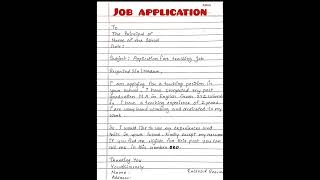 JOB APPLICATION
To
The Principal of
Name of the School
Date:
Subject: Application for teaching Job
Respected Sir/Madam,
I am applying for a teaching position in
your school. I have completed my post
graduation M.A in English from
I have a teaching experience of 2 years.
I am very hard working and dedicated to my
work.
So, I would like to use my experiences and
skills in your school. Kindly accept my resume
If you find me eligible for this post you can
call me. In this number 000.
Thanking You
Yours sincerely
Name:
Address: